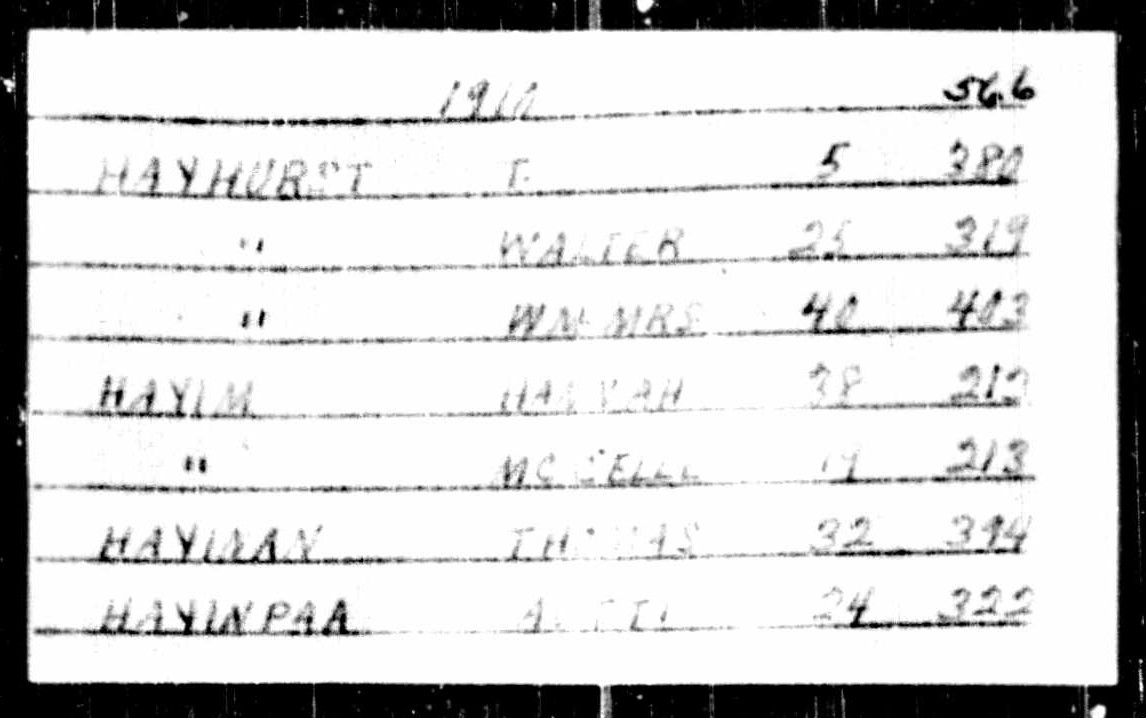 1910 56.6
HAYHURST 5 380
" WALTER 25 319
" WM MRS 40 403
HAYIM HANNAH 38 212
" 19 213
HAYIMAN THOMAS 32 394
HAYINPAA 24 322